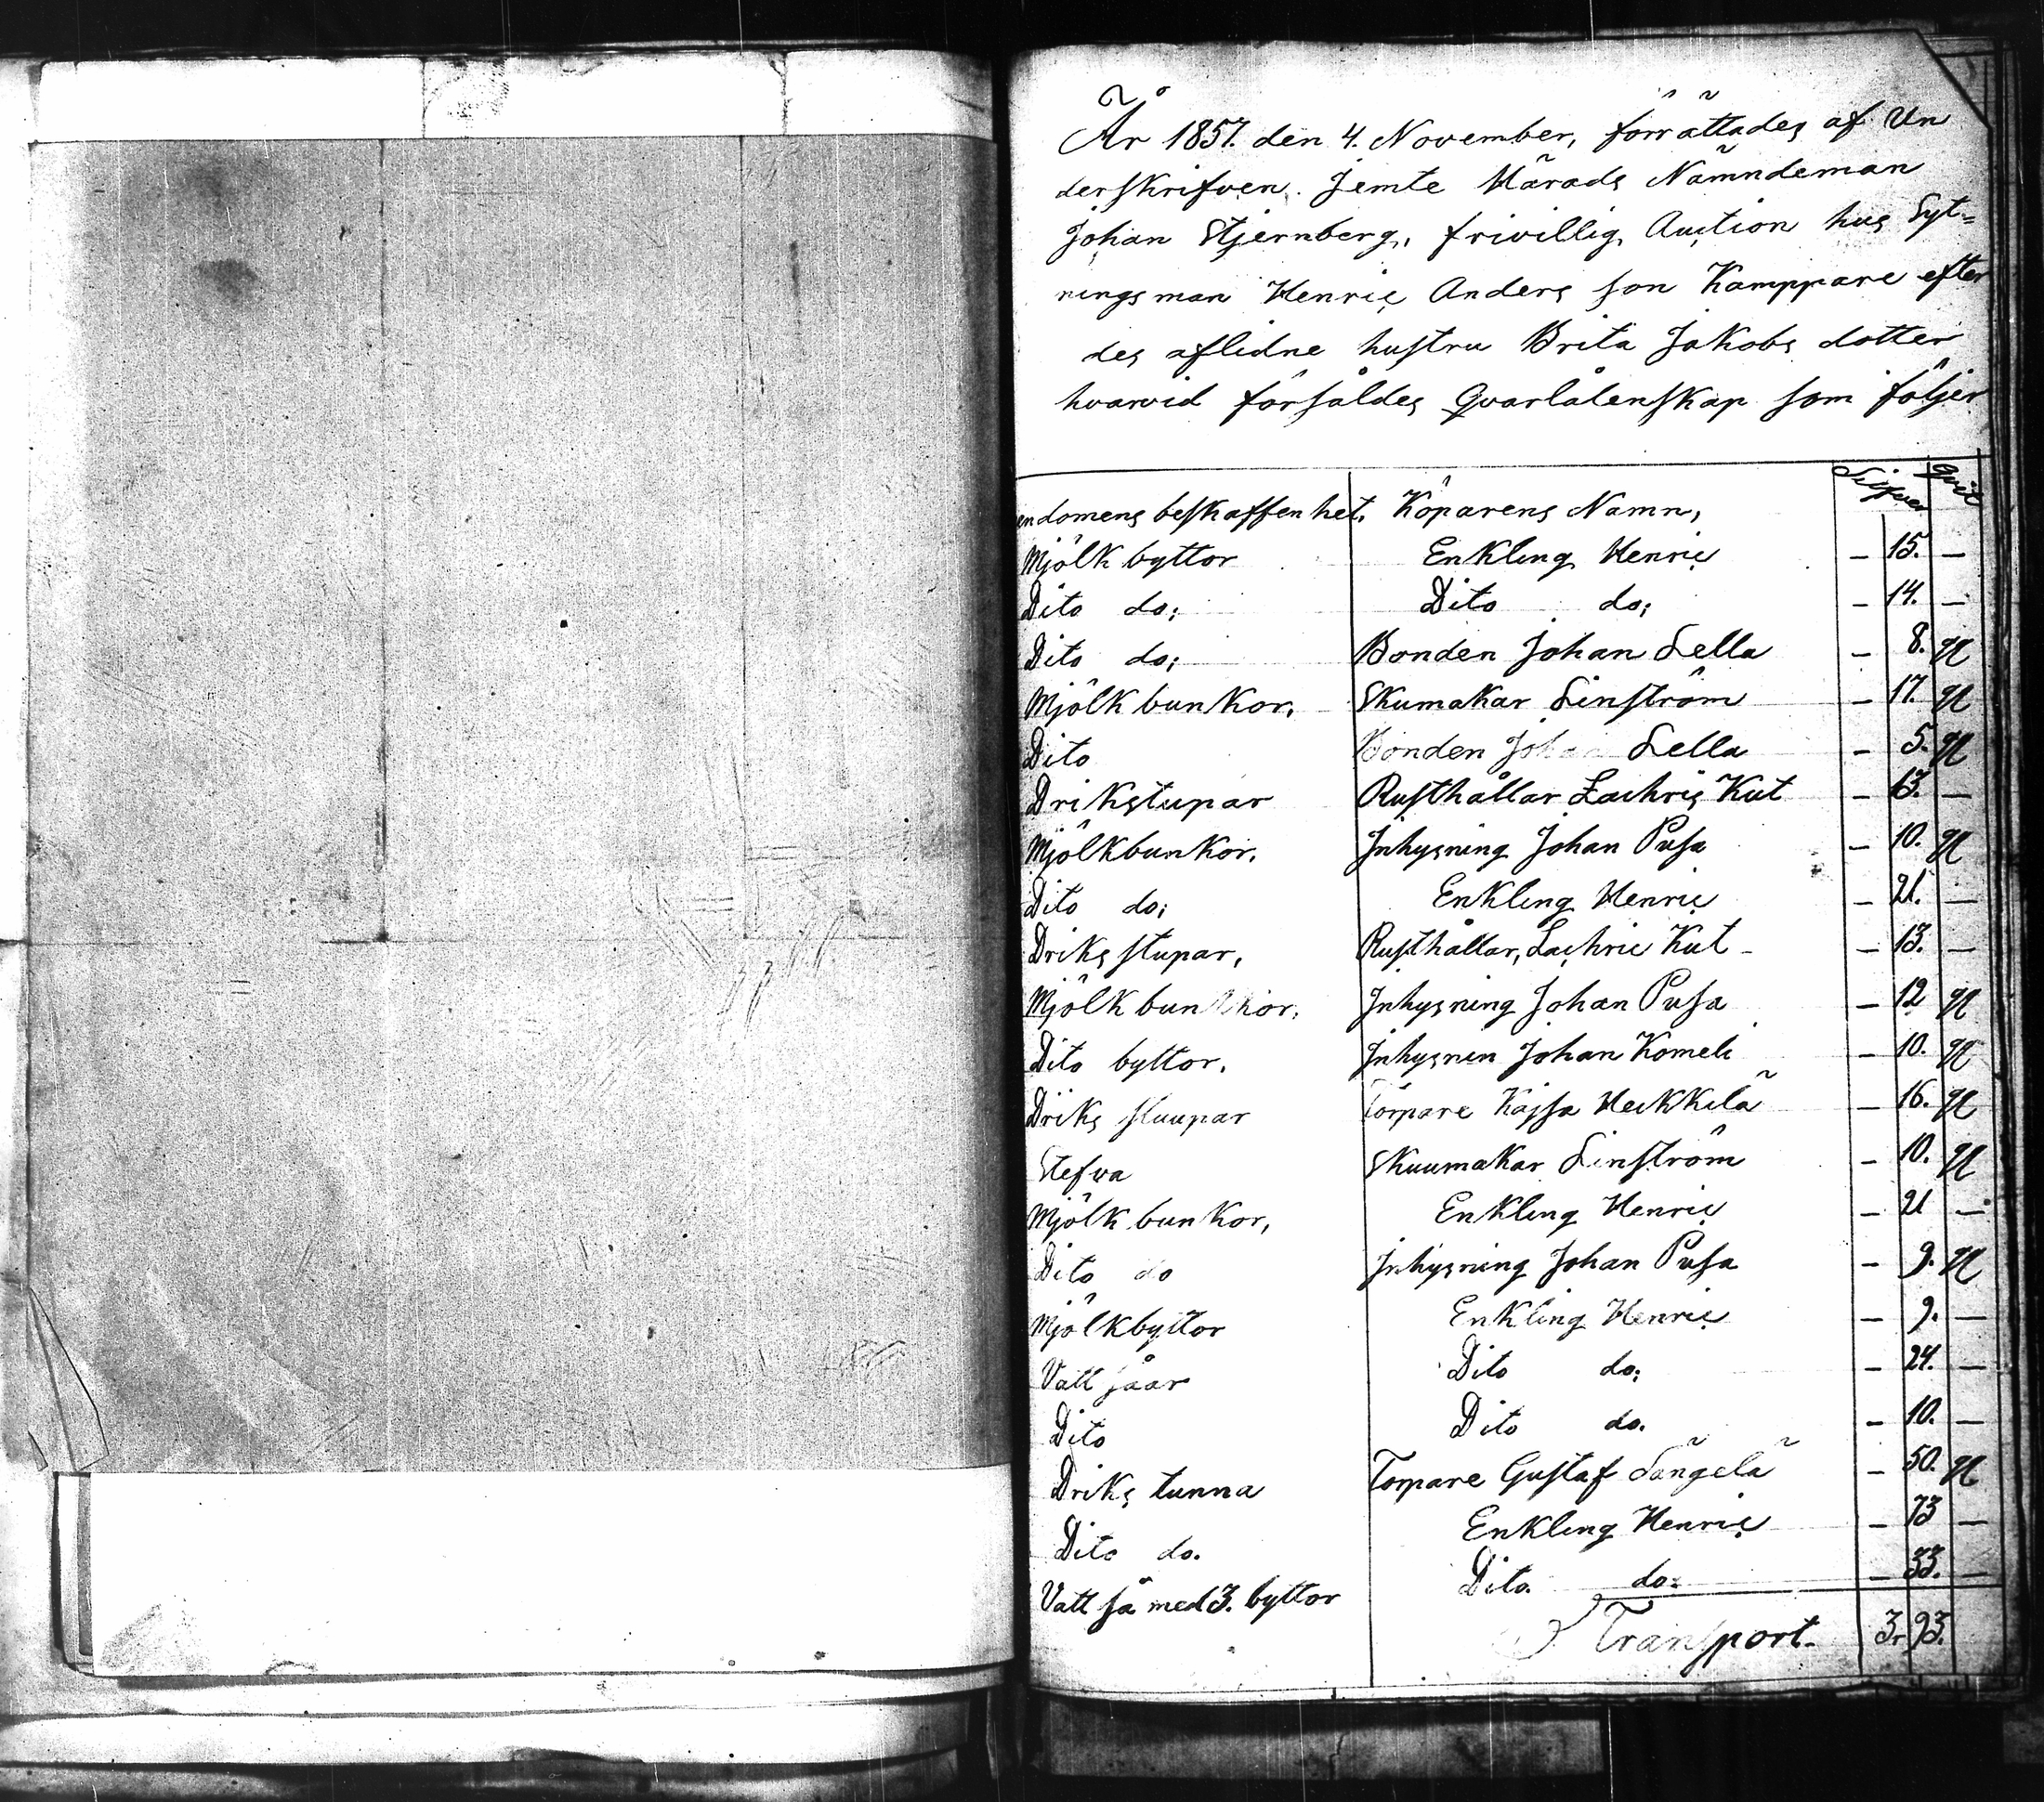 År 1857. den 4. November, förrättades af Un
derskrifven. Jemte Härads Nämndeman
Johan Stjernberg, frivillig Auction hus Syt=
ningsman Henric Anders son Kamppare efter
des aflidne hustru Brita Jakobs dotter
hvarvid försåldes Qvarlåtenskap som följer
endomens beskaffenhet. Köparens Namn, Silfver Qvit
Mjölk byttor Enkling Henric – 15. –
Dito do; Dito do; – 14. –
Dito do; Bonden Johan Lella – 8. qt
Mjölk bunkor, Skumakar Linström – 17. qt
Dito Bonden Johan Lella – 5. qt
Drikstupar Rusthållar Zachris Kut – 13. –
Mjölkbunkor. Inhysning Johan Pusa – 10. qt
Dito do; Enkling Henric – 21. –
Driks stupar, Rusthållar, Zachric Kut – 13. –
Mjölk bunkkor, Inhysning Johan Pusa – 12 qt
Dito byttor. Inhysnin Johan Komeli – 10. qt
Driks stuupar Torpare Kajsa Heikkilä – 16. qt
Stefva Skuumakar Linström – 10. qt
Mjölk bunkor, Enkling Henric – 21 –
Dito do Inhysning Johan Pusa – 9. qt
Mjölkbyttor Enkling Henric – 9. –
Vatt såar Dito do; – 24. –
Dito Dito do. – 10. –
Driks tunna Torpare Gustaf Sängelä – 50. qt
Dito do. Enkling Henric – 73 –
Vatt så med 3. byttor Dito. do: – 33. –
Transport. 3. 93.